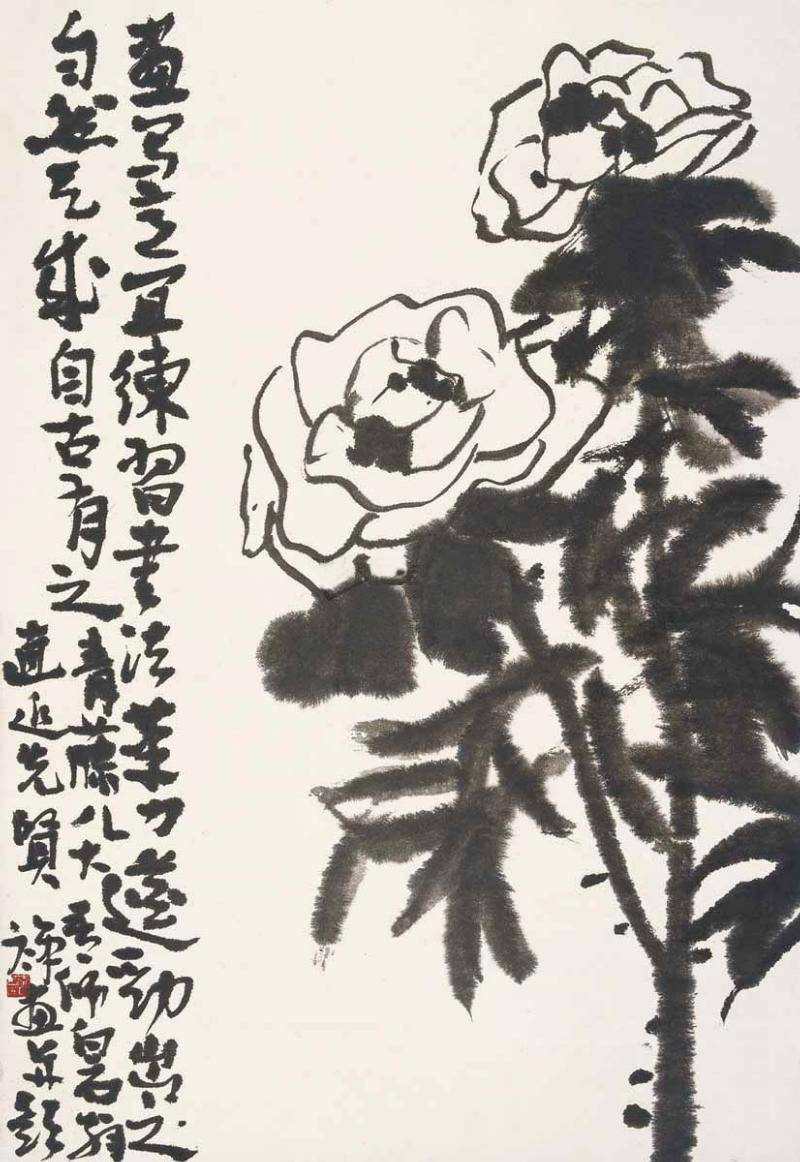 畫寫意宜練習書法筆力遒勁出之
自然天成自古有之
青藤八大吾師白石翁
直追先賢 禪畫并題